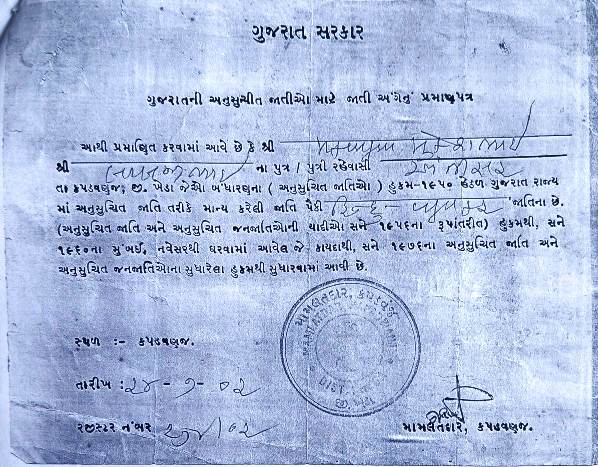 ગુજરાત સરકાર
ગુજરાતની અનુસુચીત જાતીઓ માટે જાતી અંગેનું પ્રમાણપત્ર
આથી પ્રમાણિત કરવામાં આવે છે કે શ્રી
શ્રી ના પુત્ર / પુત્રી રહેવાસી
તા કપડવણજ; જી. ખેડા જેઓ બંધારણના ( અનુસુચિત જાતિઓ ) હુકમ-૧૯૫૦ હેઠળ ગુજરાત રાજ્ય
માં અનુસુચિત જાતિ તરીકે માન્ય કરેલી જાતિ પૈકી હિન્દુ- વણકર જાતિના છે.
(અનુસુચિત જાતિ અને અનુસુચિત જનજાતિઓની યાદીઓ સને ૧૯૫૬ના રૂપાંતરીત) હુકમથી, સને
૧૯૬૦ના મુંબઈ, નવેસરથી ઘરવામાં આવેલ જે કાયદાથી, સને ૧૯૭૬ના અનુસુચિત જાતિ અને
અનુસુચિત જનજાતિઓના સુધારેલા હુકમથી સુધારવામાં આવી છે.
મામલતદાર, કપડવંજ
સ્થળ :- કપડવણજ.
તારીખ : ૨૪-૭-૦૨
રજીસ્ટર નંબર
મામલતદાર, કપડવણજ.